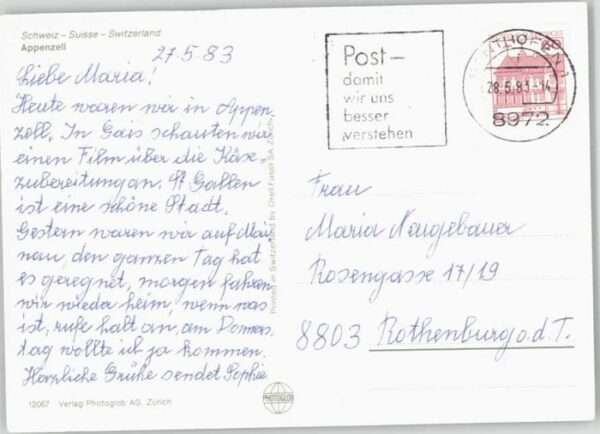 Schweiz – Suisse – Switzerland
Appenzell
27.5.83
Liebe Maria!
Heute waren wir in Appen-
zell. In Gais schauten wir
einen Film über die Käse-
zubereitung an. St Gallen
ist eine schöne Stadt.
Gestern waren wir auf Mai-
nau, den ganzen Tag hat
es geregnet, morgen fahren
wir wieder heim, wenn was
ist, rufe halt an, am Donners-
tag wollte ich ja kommen.
Herzliche Grüße sendet Sophie
12067 Verlag Photoglob AG, Zürich
Printed in Switzerland by Orell Füssli
PHOTOGLOB
Post –
damit
wir uns
besser
verstehen
28.5.83-14
8972
Frau
Maria Neugebauer
Rosengasse 17/19
8803 Rothenburg o.d.T.